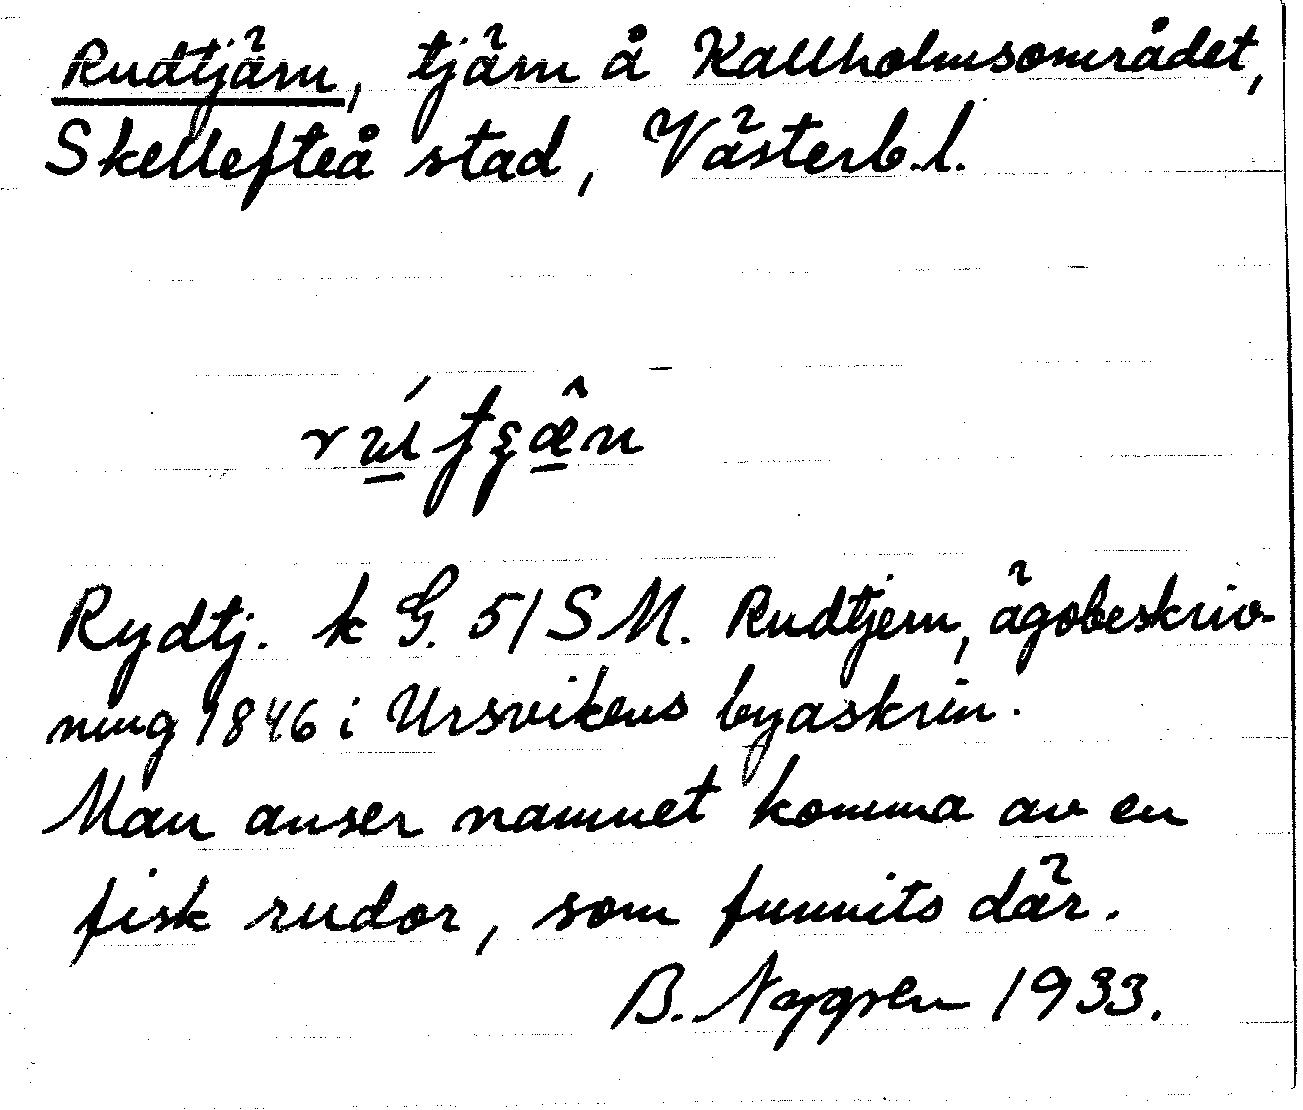 Rudtjärn, tjärn å Kallholmsområdet,
Skellefteå stad, Västerb.l.
Rydtj. k G. 51 S M. Rudtjern, ägobeskriv-
ning 1846 i Ursvikens byaskrin.
Man anser namnet komma av en
fisk rudor, som funnits där.
B. Nygren 1933.